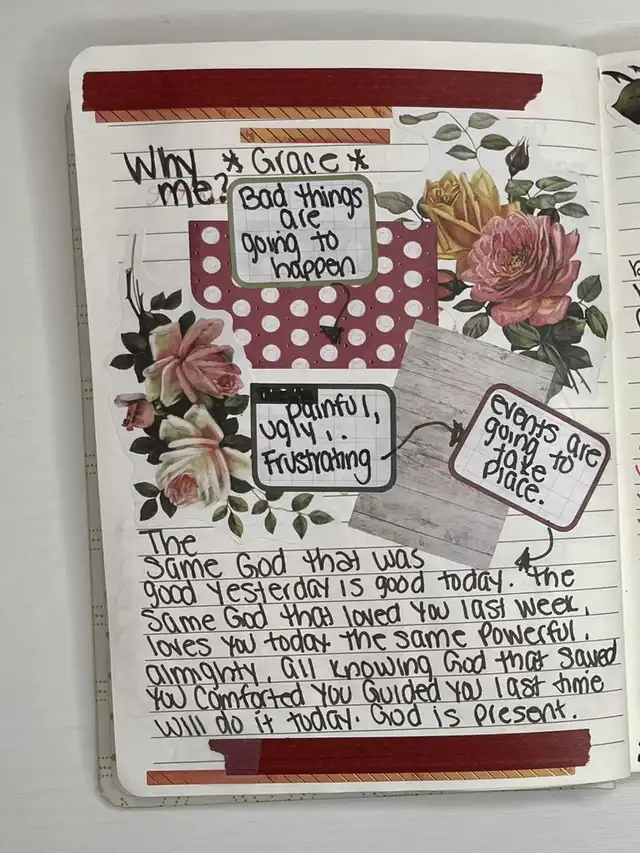 Why *Grace*
me?
Bad things
are
going to
happen
painful,
ugly..
Frustrating
events are
going to
take
place.
The
same God that was
good yesterday is good today. The
same God that loved you last week,
loves you today. The same powerful,
almighty, all knowing God that saved
you comforted you guided you last time
will do it today. God is present.